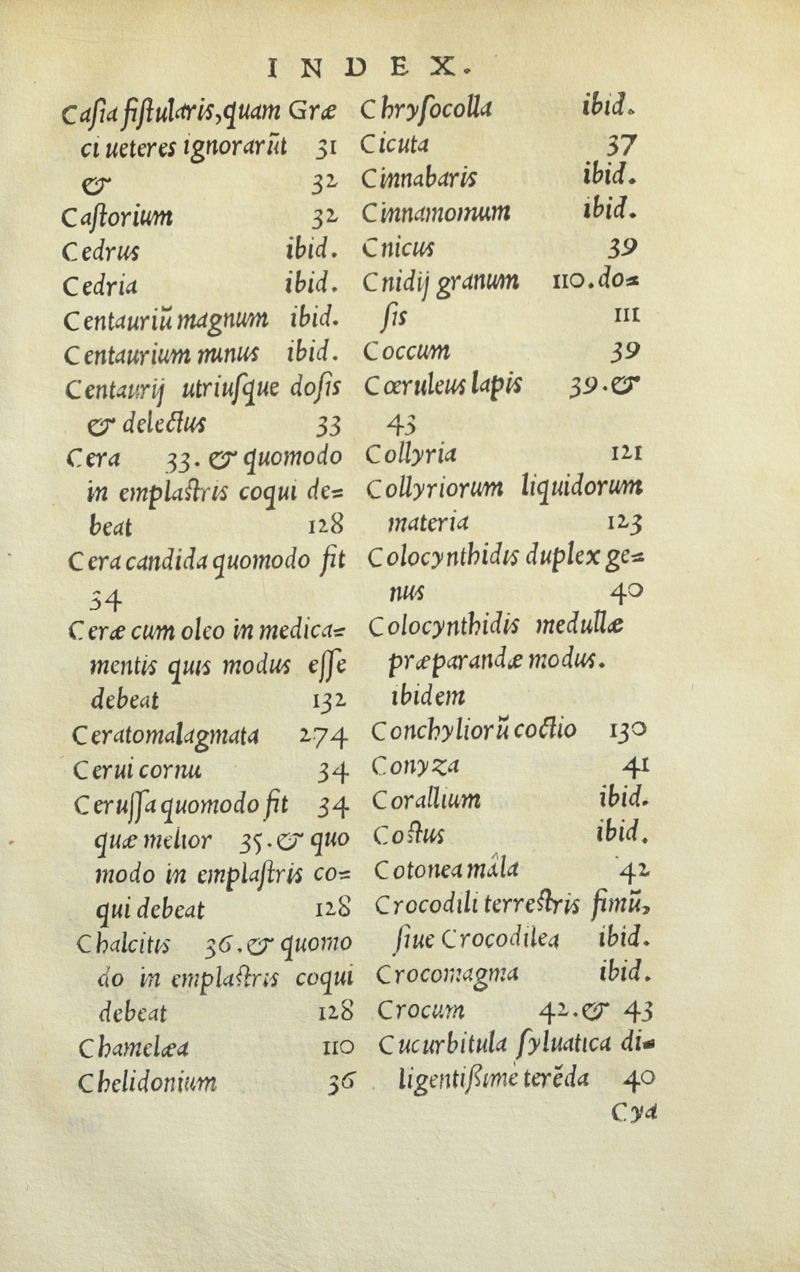 INDEX.
Caſia fiſtularis, quam Græ
ci ueteres ignorarūt 31
& 32
Caſtorium 32
Cedrus ibid.
Cedria ibid.
Centauriū magnum ibid.
Centaurium minus ibid.
Centaurij utriuſque doſis
& delectus 33
Cera 33. & quomodo
in emplaſtris coqui de=
beat 128
Cera candida quomodo fit
34
Ceræ cum oleo in medica=
mentis quis modus eſſe
debeat 132
Ceratomalagmata 274
Cerui cornu 34
Ceruſſa quomodo fit 34
quæ melior 35. & quo
modo in emplaſtris co=
qui debeat 128
Chalcitis 36. & quomo
do in emplaſtris coqui
debeat 128
Chamelæa 110
Chelidonium 36
Chryſocolla ibid.
Cicuta 37
Cinnabaris ibid.
Cinnamomum ibid.
Cnicus 39
Cnidij granum 110. do=
ſis 111
Coccum 39
Cœruleus lapis 39. &
43
Collyria 121
Collyriorum liquidorum
materia 123
Colocynthidis duplex ge=
nus 40
Colocynthidis medullæ
præparandæ modus.
ibidem
Conchyliorū coctio 130
Conyza 41
Corallium ibid.
Coſtus ibid.
Cotonea mâla 42
Crocodili terreſtris fimū,
ſiue Crocodilea ibid.
Crocomagma ibid.
Crocum 42. & 43
Cucurbitula ſyluatica di=
ligentiſſimè terēda 40
Cyd